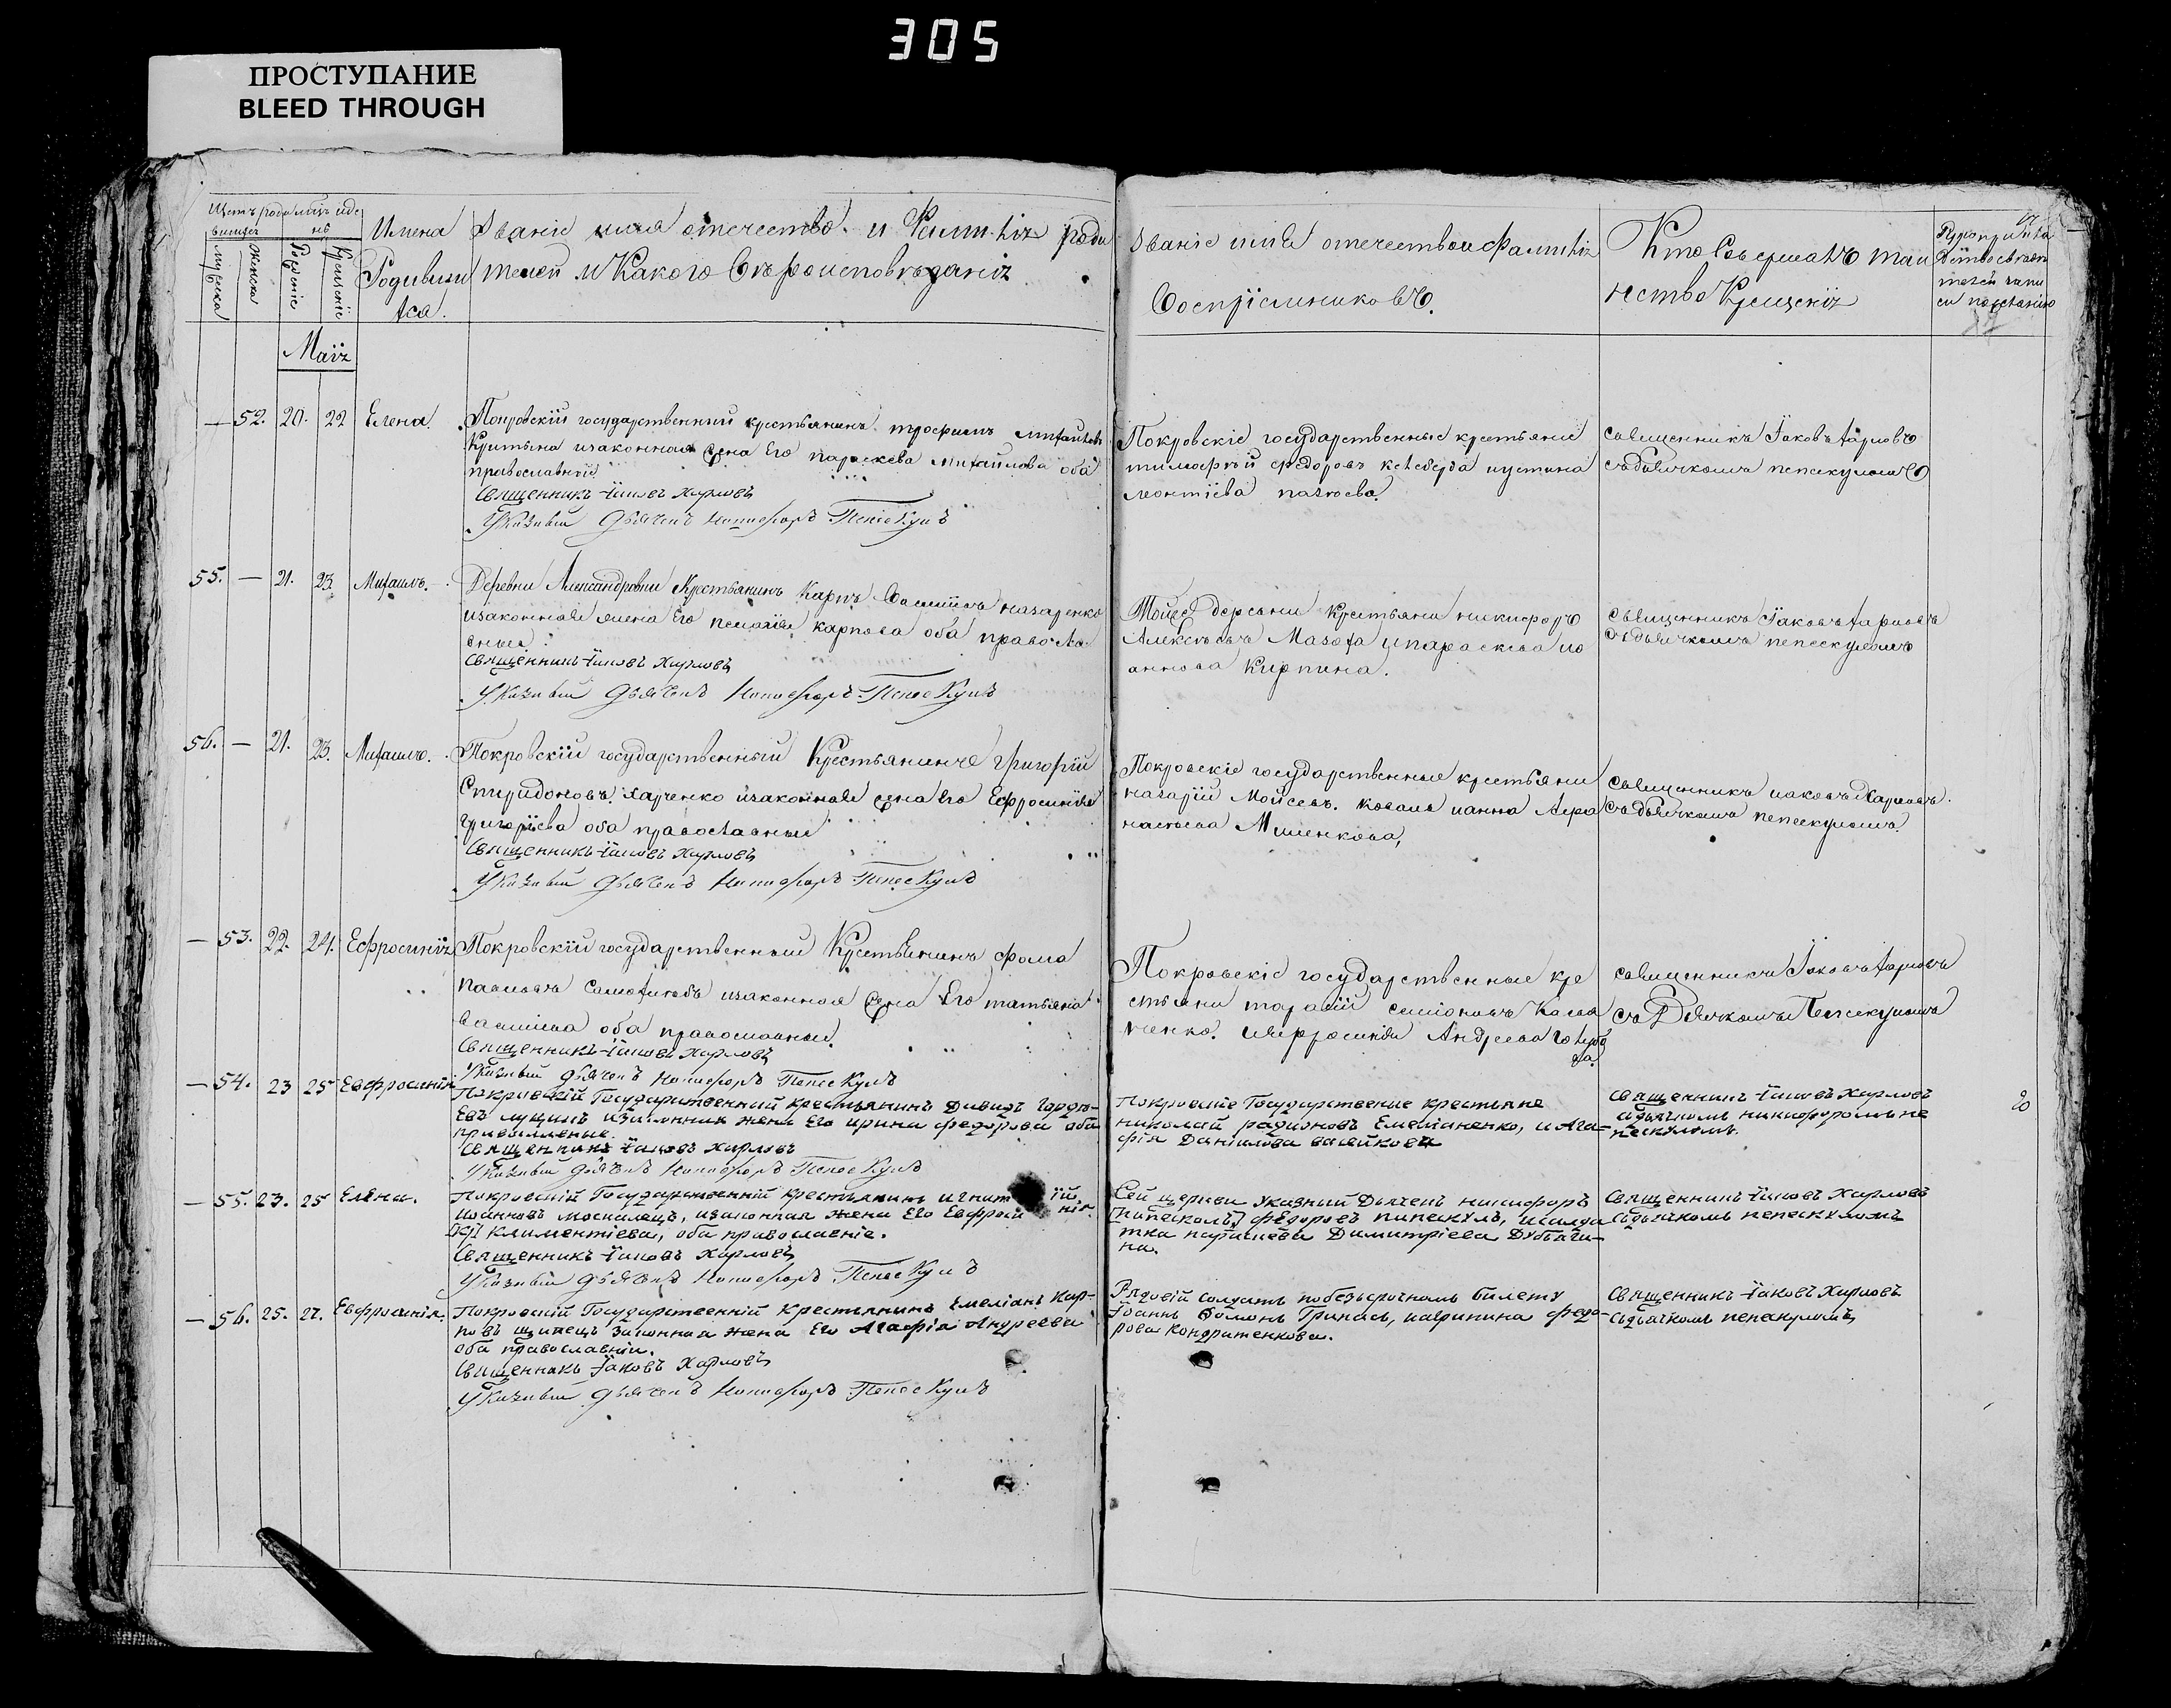 305
ПРОСТУПАНИЕ
BLEED THROUGH
Имена
Родивши
хся.
Званіе имя отечество. и Фамилія роди
телей и Какого Вѣроисповѣданія
Званіе имя отечество и Фамилія
Воспріемниковъ.
Кто Совершалъ таи
нство Крещенія
Маія
— 52. 20. 22 Елена.
Покровскій государственный крестьянинъ трофимъ михайловъ
изаконная жена Его параскева михайлова оба
православніи
Священникъ Іаковъ Харловъ
Указный Дьячекъ Никифоръ Пепескулъ
Покровскіе государственные крестьяне
тимофей федоровъ кечеберда иустина
леонтіева
священникъ Іаковъ Харловъ
съ дьячкомъ пепескуломъ
55. — 21. 23. Михаилъ.
Деревни Александровки Крестьянинъ Карпъ назаренко
изаконная жена Его пелагія карпова оба правосла
вные
Священникъ Іаковъ Харловъ
Указный Дьячекъ Никифоръ Пепескулъ
Тойже деревни Крестьяни никифоръ
Алексѣевъ Мазоха ипараскева ио
аннова Кирпина.
священникъ Іаковъ Харловъ
съ дьячкомъ пепескуломъ
56. — 21. 23. Михаилъ.
Покровскій государственный Крестьянинъ григорій
Спиридоновъ. Харченко изаконная жена Его Ефросинія
григоріева оба православные
Священникъ Іаковъ Харловъ
Указный Дьячекъ Никифоръ Пепескулъ
Покровскіе государственные крестьяни
назарій Мойсеевъ. Коваль ианна Афра
насьева Миленкова,
священникъ иаковъ Харловъ.
съ дьячкомъ пепескуломъ.
— 53. 22. 24. Есфросинія
Покровскій государственный Крестьянинъ фома
Павловъ изаконная жена Его татьяна
василіева оба православные.
Священникъ Іаковъ Харловъ
Указный Дьячекъ Никифоръ Пепескулъ
Покровскіе государственные кре
стьяни тарасій семіоновъ Кала
ченко. Андреева
священникъ Іаковъ Харловъ
съ Дьячкомъ Пепескуломъ
— 54. 23 25 Евфросинія
Покровскій Государственний крестьянинъ Давидъ Гордѣ-
евъ лущикъ изаконная жена Его ирина федорова оба
православные.
Священникъ Іаковъ Харловъ
Указный Дьячекъ Никифоръ Пепескулъ
Покровскіе Государственіе крестьяне
николай радионовъ Емеліаненко, иАга-
фія Даніилова васейкова
Священникъ Іаковъ Харловъ
сдьячкомъ никифоромъ пе
пескуломъ.
20
— 55. 23. 25 Елена.
Покровскій Государственній крестьянинъ игнатій
иоанновъ москалецъ, изаконная жена Его Евфросинія
климентіева, оба православніе.
Священникъ Іаковъ Харловъ
Указный Дьячекъ Никифоръ Пепескулъ
Сей церкви указный Дьячекъ никифоръ
федоровъ пипескулъ, исолда
тка параскева Димитріева Дубѣги-
на.
Священникъ Іаковъ Харловъ
съдьячкомъ пепескуломъ
— 56. 25. 27. Евфросинія.
Покровскій Государственній Крестьянинъ Емеліанъ Кар-
повъ щипецъ законная жена Его Агафіа Андреева
оба православніи.
Священникъ Іаковъ Харловъ
Указный Дьячекъ Никифоръ Пепескулъ
Рядовій солдатъ побезъсрочномъ билету
Іоаннъ Фоминъ Грипась, иагрипина федо-
рова Кондратенкова.
Священникъ Іаковъ Харловъ
съдьячкомъ пепескуломъ